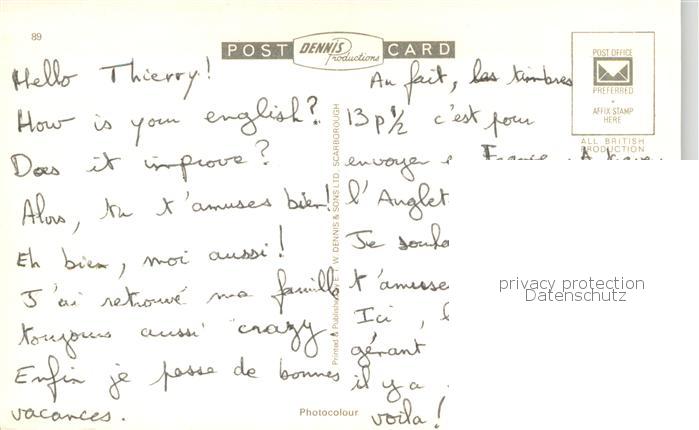 89
POST DENNIS Productions CARD
POST OFFICE
PREFERRED
AFFIX STAMP
HERE
ALL BRITISH
PRODUCTION
Hello Thierry!
How is your english?
Does it improve?
Alors, tu t'amuses bien!
Eh bien, moi aussi!
J'ai retrouvé ma famille
toujours aussi "crazy"
Enfin je passe de bonnes
vacances.
Printed & Published by E.T.W. DENNIS & SONS LTD., SCARBOROUGH
Photocolour
Au fait, les timbres
13p½ c'est pour
envoyer
l'Anglet
Je souha
t'amuse
Ici,
gérant
il y a
voila!
privacy protection
Datenschutz